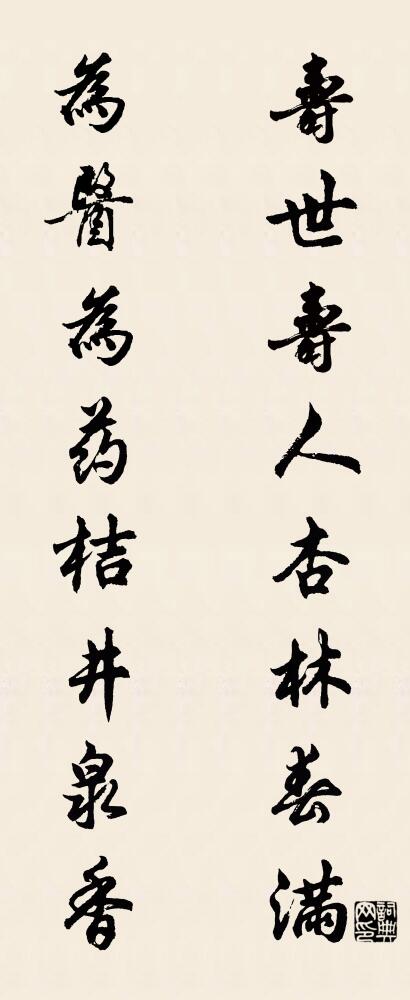 壽世壽人杏林春满
為醫為药桔井泉香
詞典网印